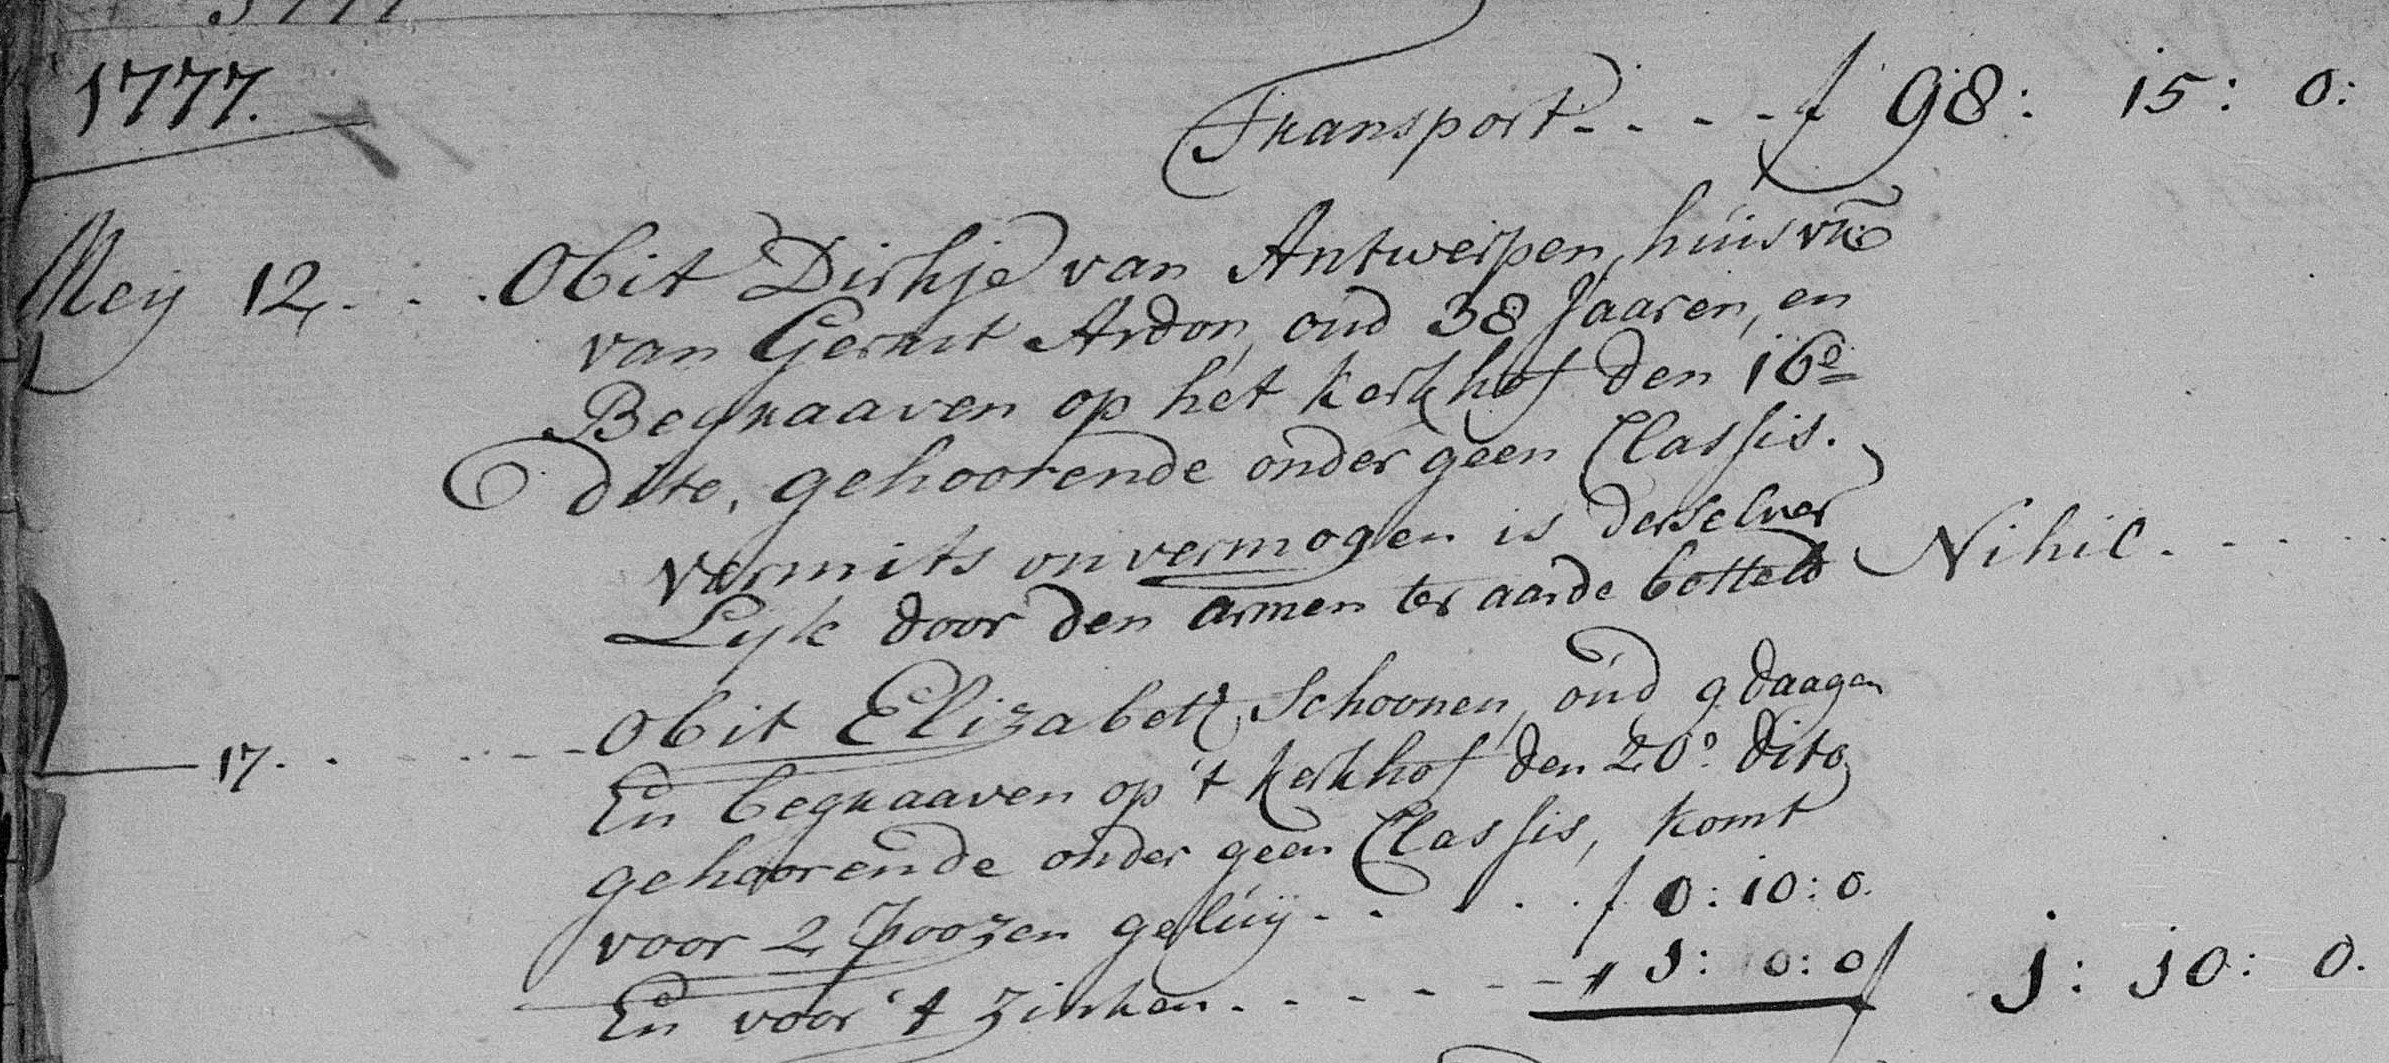 1777.
Transport . . . . f 98: 15: 0:
Meij 12, . . . Obit Dirkje van Antwerpen, huisvr:
van Gerrit Ardon, oud 38 Jaaren, en
Begraaven op het kerkhof den 16e
dito, gehoorende onder geen Classis.
vermits onvermogen is derselver
Lijk door den armen ter aarde besteld Nihil . . . .
17. . . . . . Obit Elizabeth Schoonen, oud 9 daagen
En begraaven op 't kerkhof den 20o dito
gehoorende onder geen Classis, komt
voor 2 poozen geluij . . . . . f 0: 10: 0.
En voor 't zinken . . . . . . . " 1: 0: 0 f 1: 10: 0.